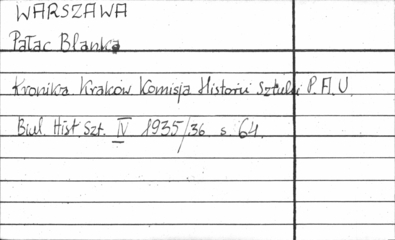 WARSZAWA
Pałac Blanka
Kronika Kraków Komisja Historii Sztuki P.A.U.
Biul. Hist. Szt. IV 1935/36 s. 64.